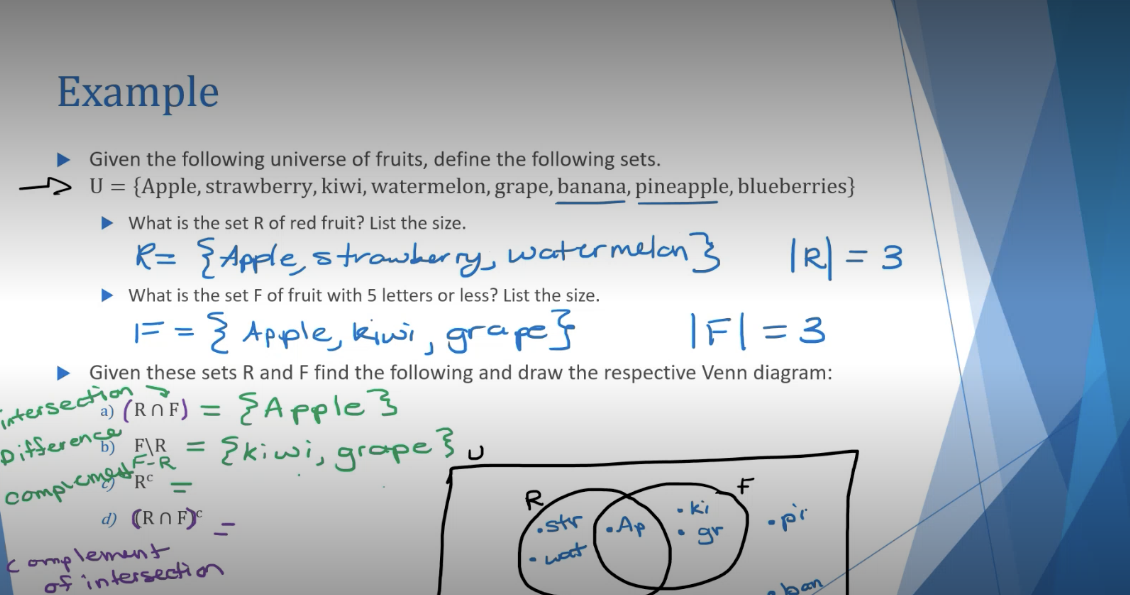 Example
Given the following universe of fruits, define the following sets.
U = {Apple, strawberry, kiwi, watermelon, grape, banana, pineapple, blueberries}
What is the set R of red fruit? List the size.
R = {Apple, strawberry, watermelon} |R| = 3
What is the set F of fruit with 5 letters or less? List the size.
F = {Apple, kiwi, grape} |F| = 3
Given these sets R and F find the following and draw the respective Venn diagram:
intersection
a) (R ∩ F) = {Apple}
Difference
b) F\R = {kiwi, grape}
F-R
complement
c) Rᶜ =
d) (R ∩ F)ᶜ =
complement
of intersection
U
R F
.str .Ap .ki .pi
.wat .gr
.ban